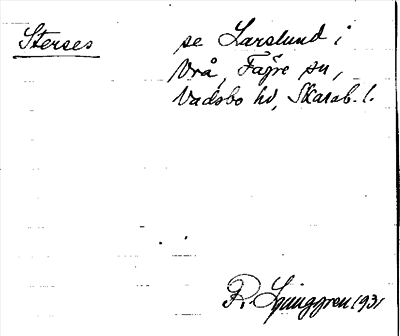 Sterses
se Larslund i
Vrå, Fägre sn,
Vadsbo hd, Skarab. l.
R. Ljunggren 1931